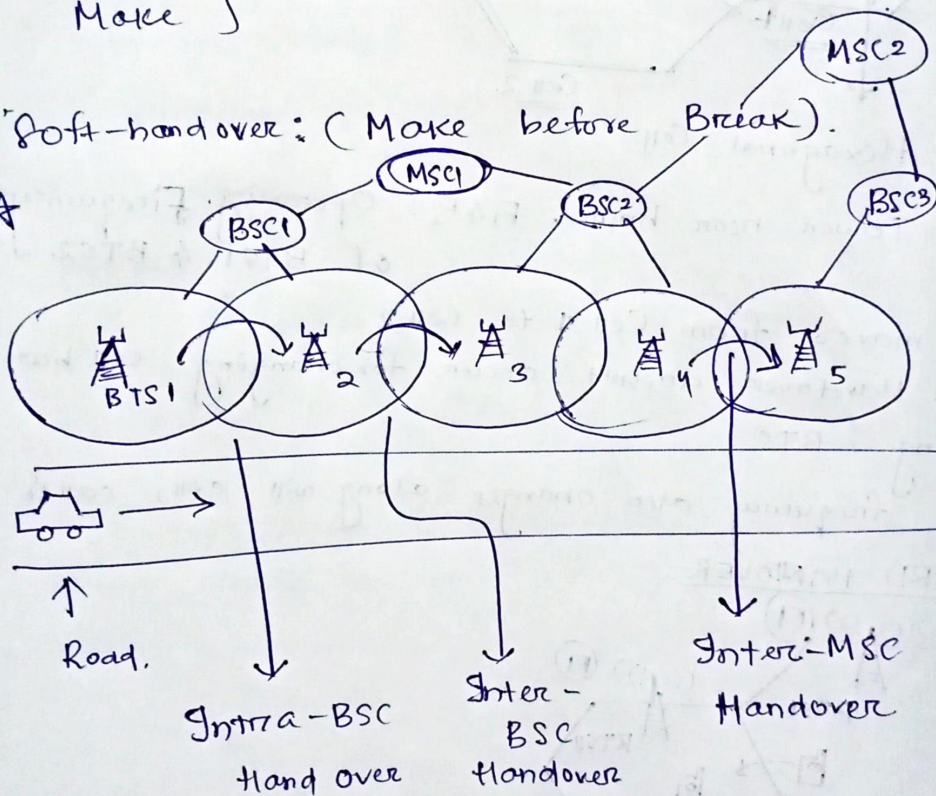 Make
Soft-handover: (Make before Break).
MSC2
MSC1
BSC1
BSC2
BSC3
BTS1
2
3
4
5
Road.
Intra-BSC
Hand over
Inter-
BSC
Handover
Inter-MSC
Handover